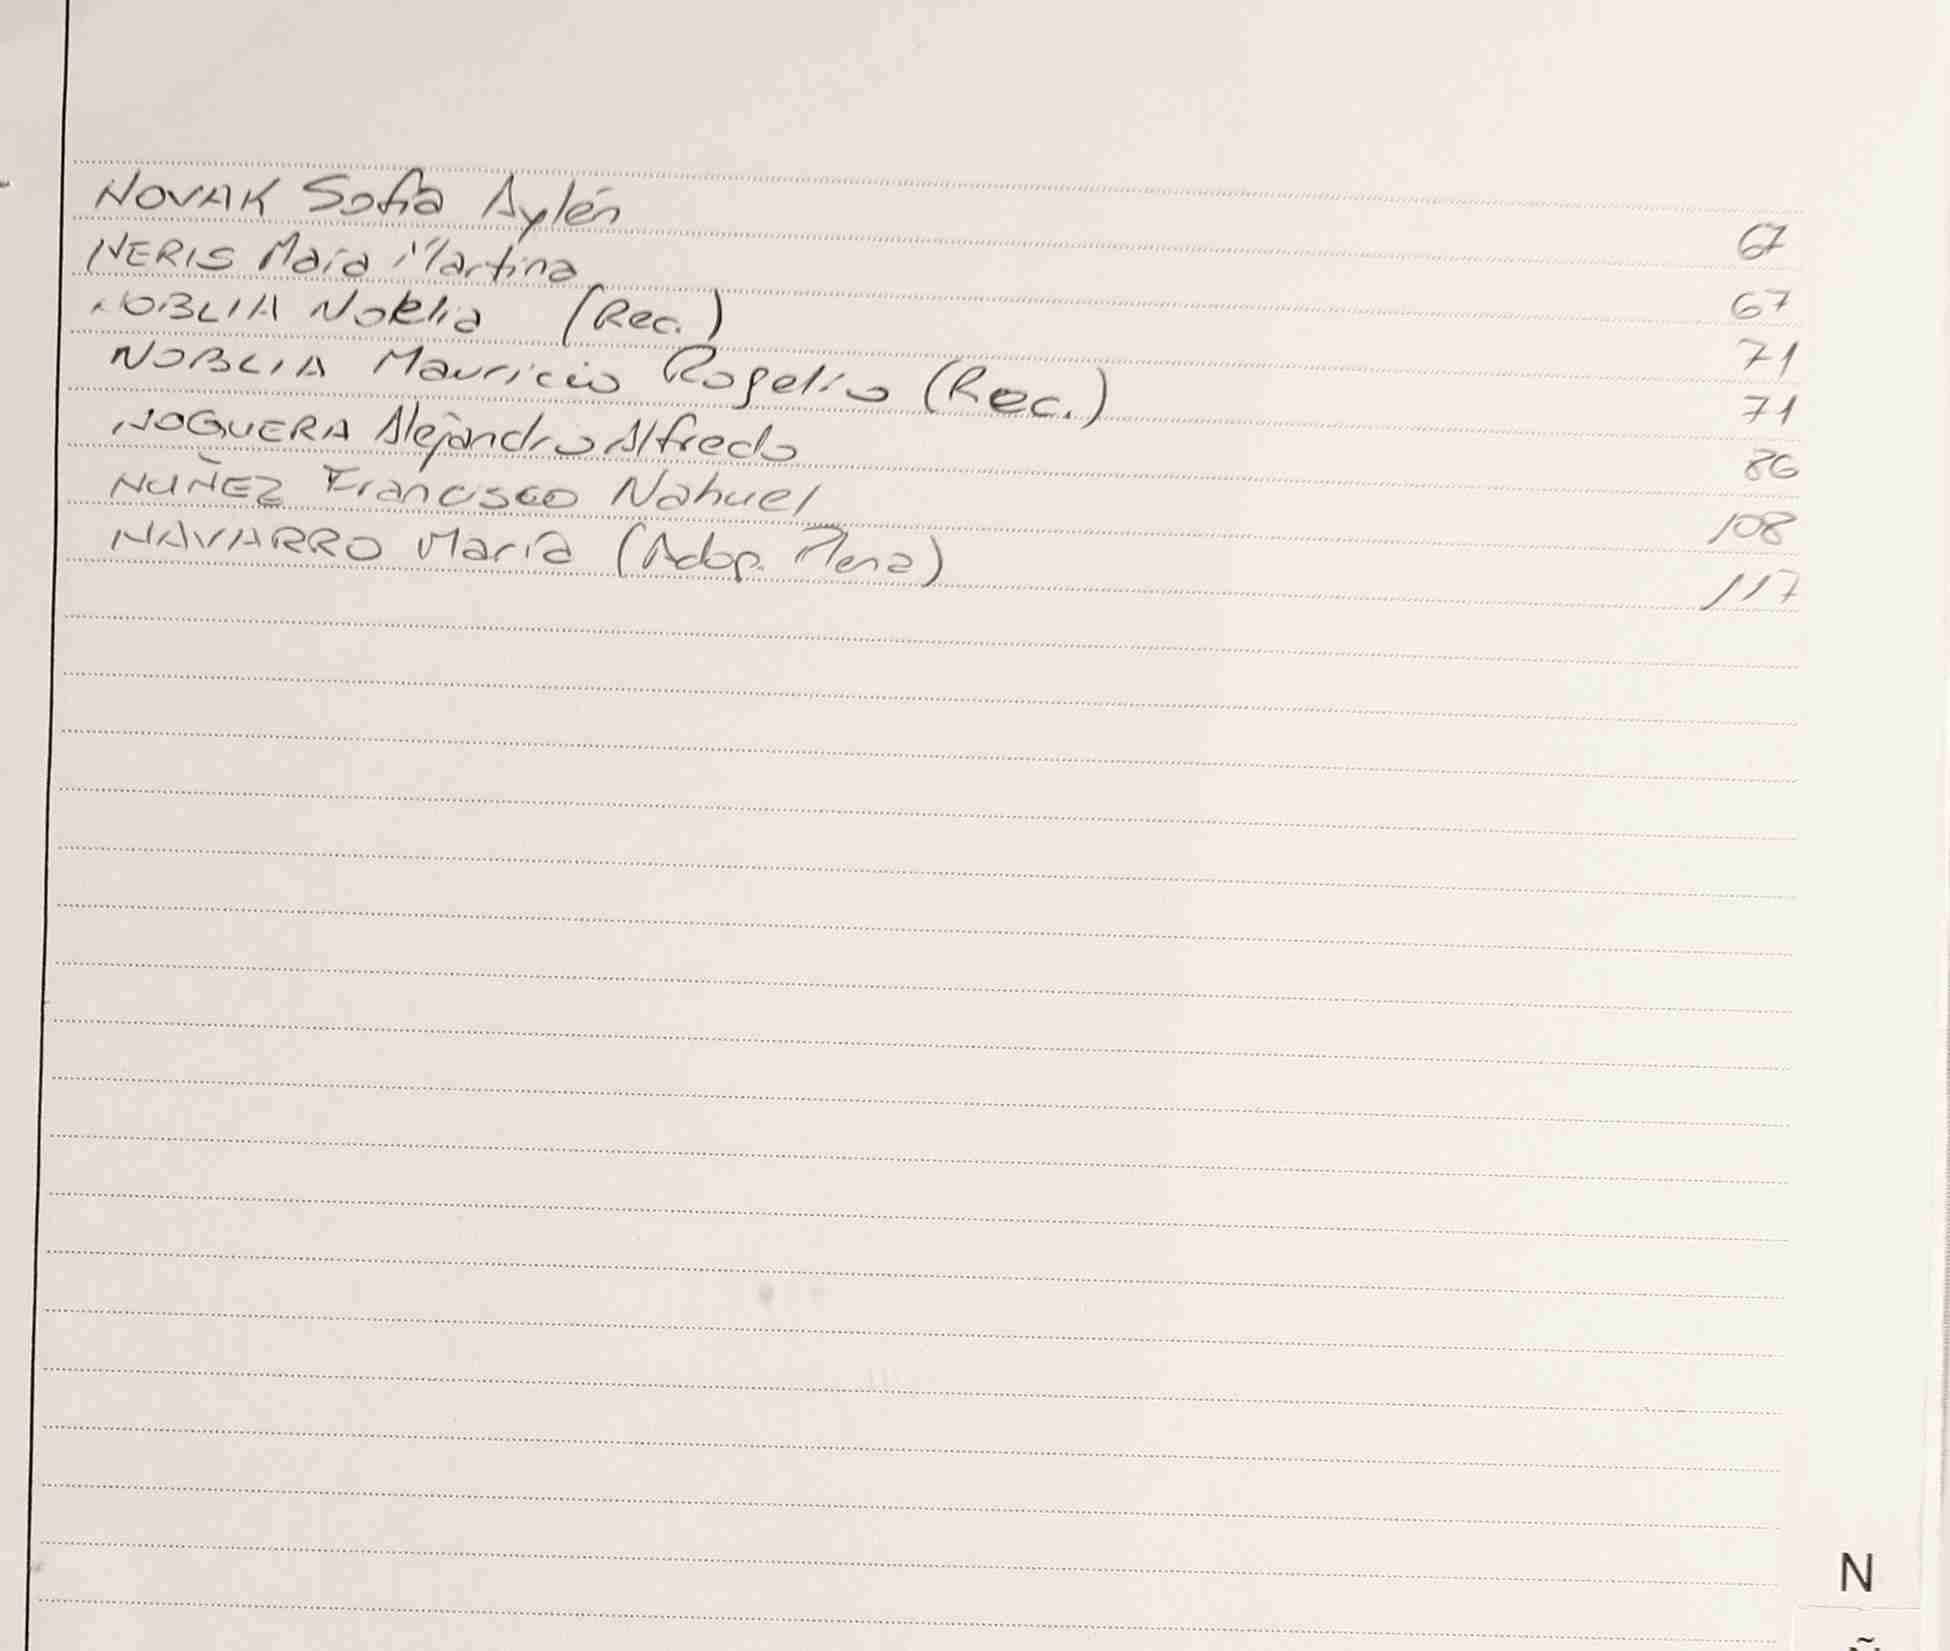 NOVAK Sofía Aylén 67
NERIS Maia Martina 67
NOBLIA Noelia (Rec.) 71
NOBLIA Mauricio Rogelio (Rec.) 71
NOGUERA Alejandro Alfredo 86
NUÑEZ Francisco Nahuel 108
NAVARRO María (Adop. Plena) 117
N
Ñ